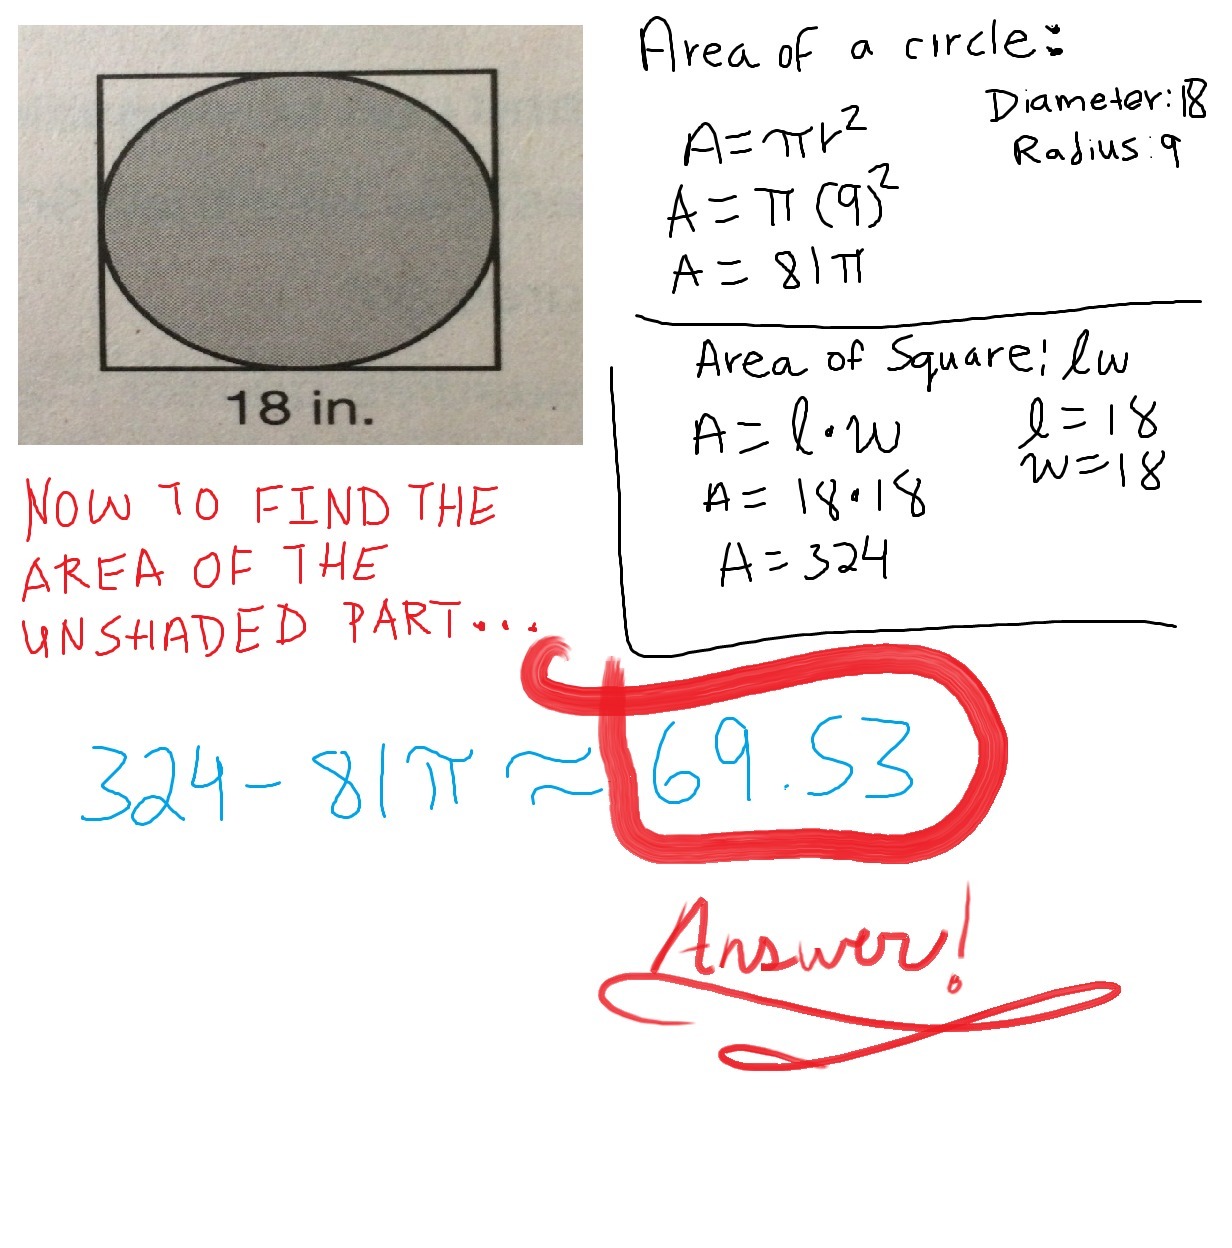 Area of a circle:
Diameter: 18
Radius: 9
A = πr²
A = π (9)²
A = 81π
18 in.
Area of Square: lw
A = l·w
l = 18
w = 18
A = 18·18
A = 324
NOW TO FIND THE
AREA OF THE
UNSHADED PART...
324 - 81π ≈ 69.53
Answer!